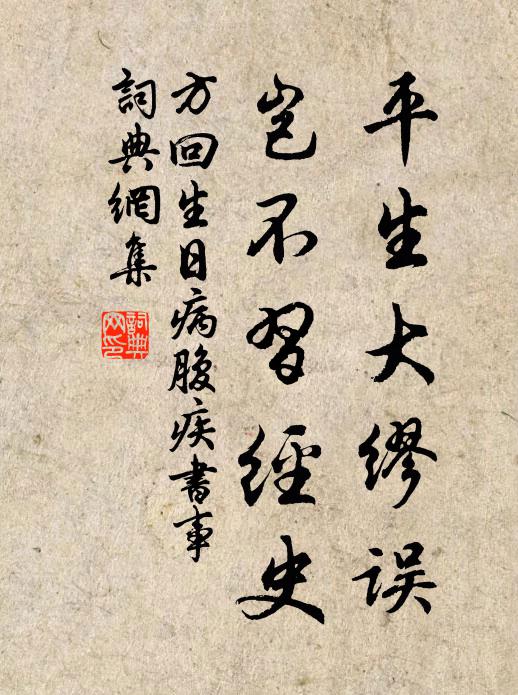 平生大缪误
岂不习经史
方回生日病腹疾书事
词典網集
詞典網印